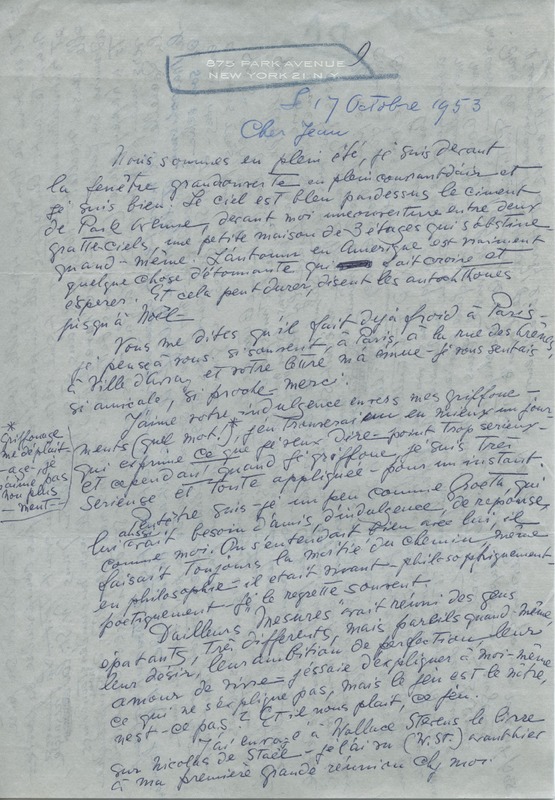 875 PARK AVENUE
NEW YORK 21. N.Y.
17 Octobre 1953
Cher Jean
Nous sommes en plein été, je suis devant
la fenêtre grandouverte en plein courant d'air et
je suis bien. Le ciel est bleu pardessus le ciment
de Park Avenue, devant moi une ouverture entre deux
gratte-ciels, une petite maison de 3 étages qui s'obstine
quand-même. L'automne en Amerique est vraiment
quelque chose d'étonnante qui fait croire et
esperer. Et cela peut durer, disent les autochtones
jusqu'à Noël
Vous me dites qu'il fait déjà froid à Paris -
je pense à vous si souvent, à Paris, à la rue des
à Ville d'Avray et votre lettre m'a émue - je vous sentais
si amicale, si proche - merci.
J'aime votre indulgence envers mes griffone-
ments (quel mot!)*, j'en trouverai un en mieux un jour
qui exprime ce que je veux dire - point trop serieux -
et cependant quand je griffone, je suis très
serieuse et toute appliquée - pour un instant
* Griffonage
me déplait
- age, je
n'aime pas
non plus
- ment -
Peutêtre suis-je un peu comme qui
lui aussi avait besoin d'amis, d'indulgence, de reponse,
comme moi. On s'entendait bien avec lui, il
faisait toujours la moitié du chemin, même
en philosophie - il etait vivant - philosophiquement -
poétiquement je le regrette souvent
D'ailleurs "Mesures" avait réuni des gens
épatants, très differents, mais pareils quand-même,
leur désir, leur ambition de perfection, leur
amour de vivre - j'essaie d'expliquer à moi-même
ce qui ne s'explique pas, mais le feu est le nôtre,
n'est-ce pas? Et il nous plait, ce feu.
J'ai envoyé à Wallace Stevens le livre
sur Nicolas de Staël - je l'ai vu (W.St.) avant hier
à ma première grande réunion chez moi